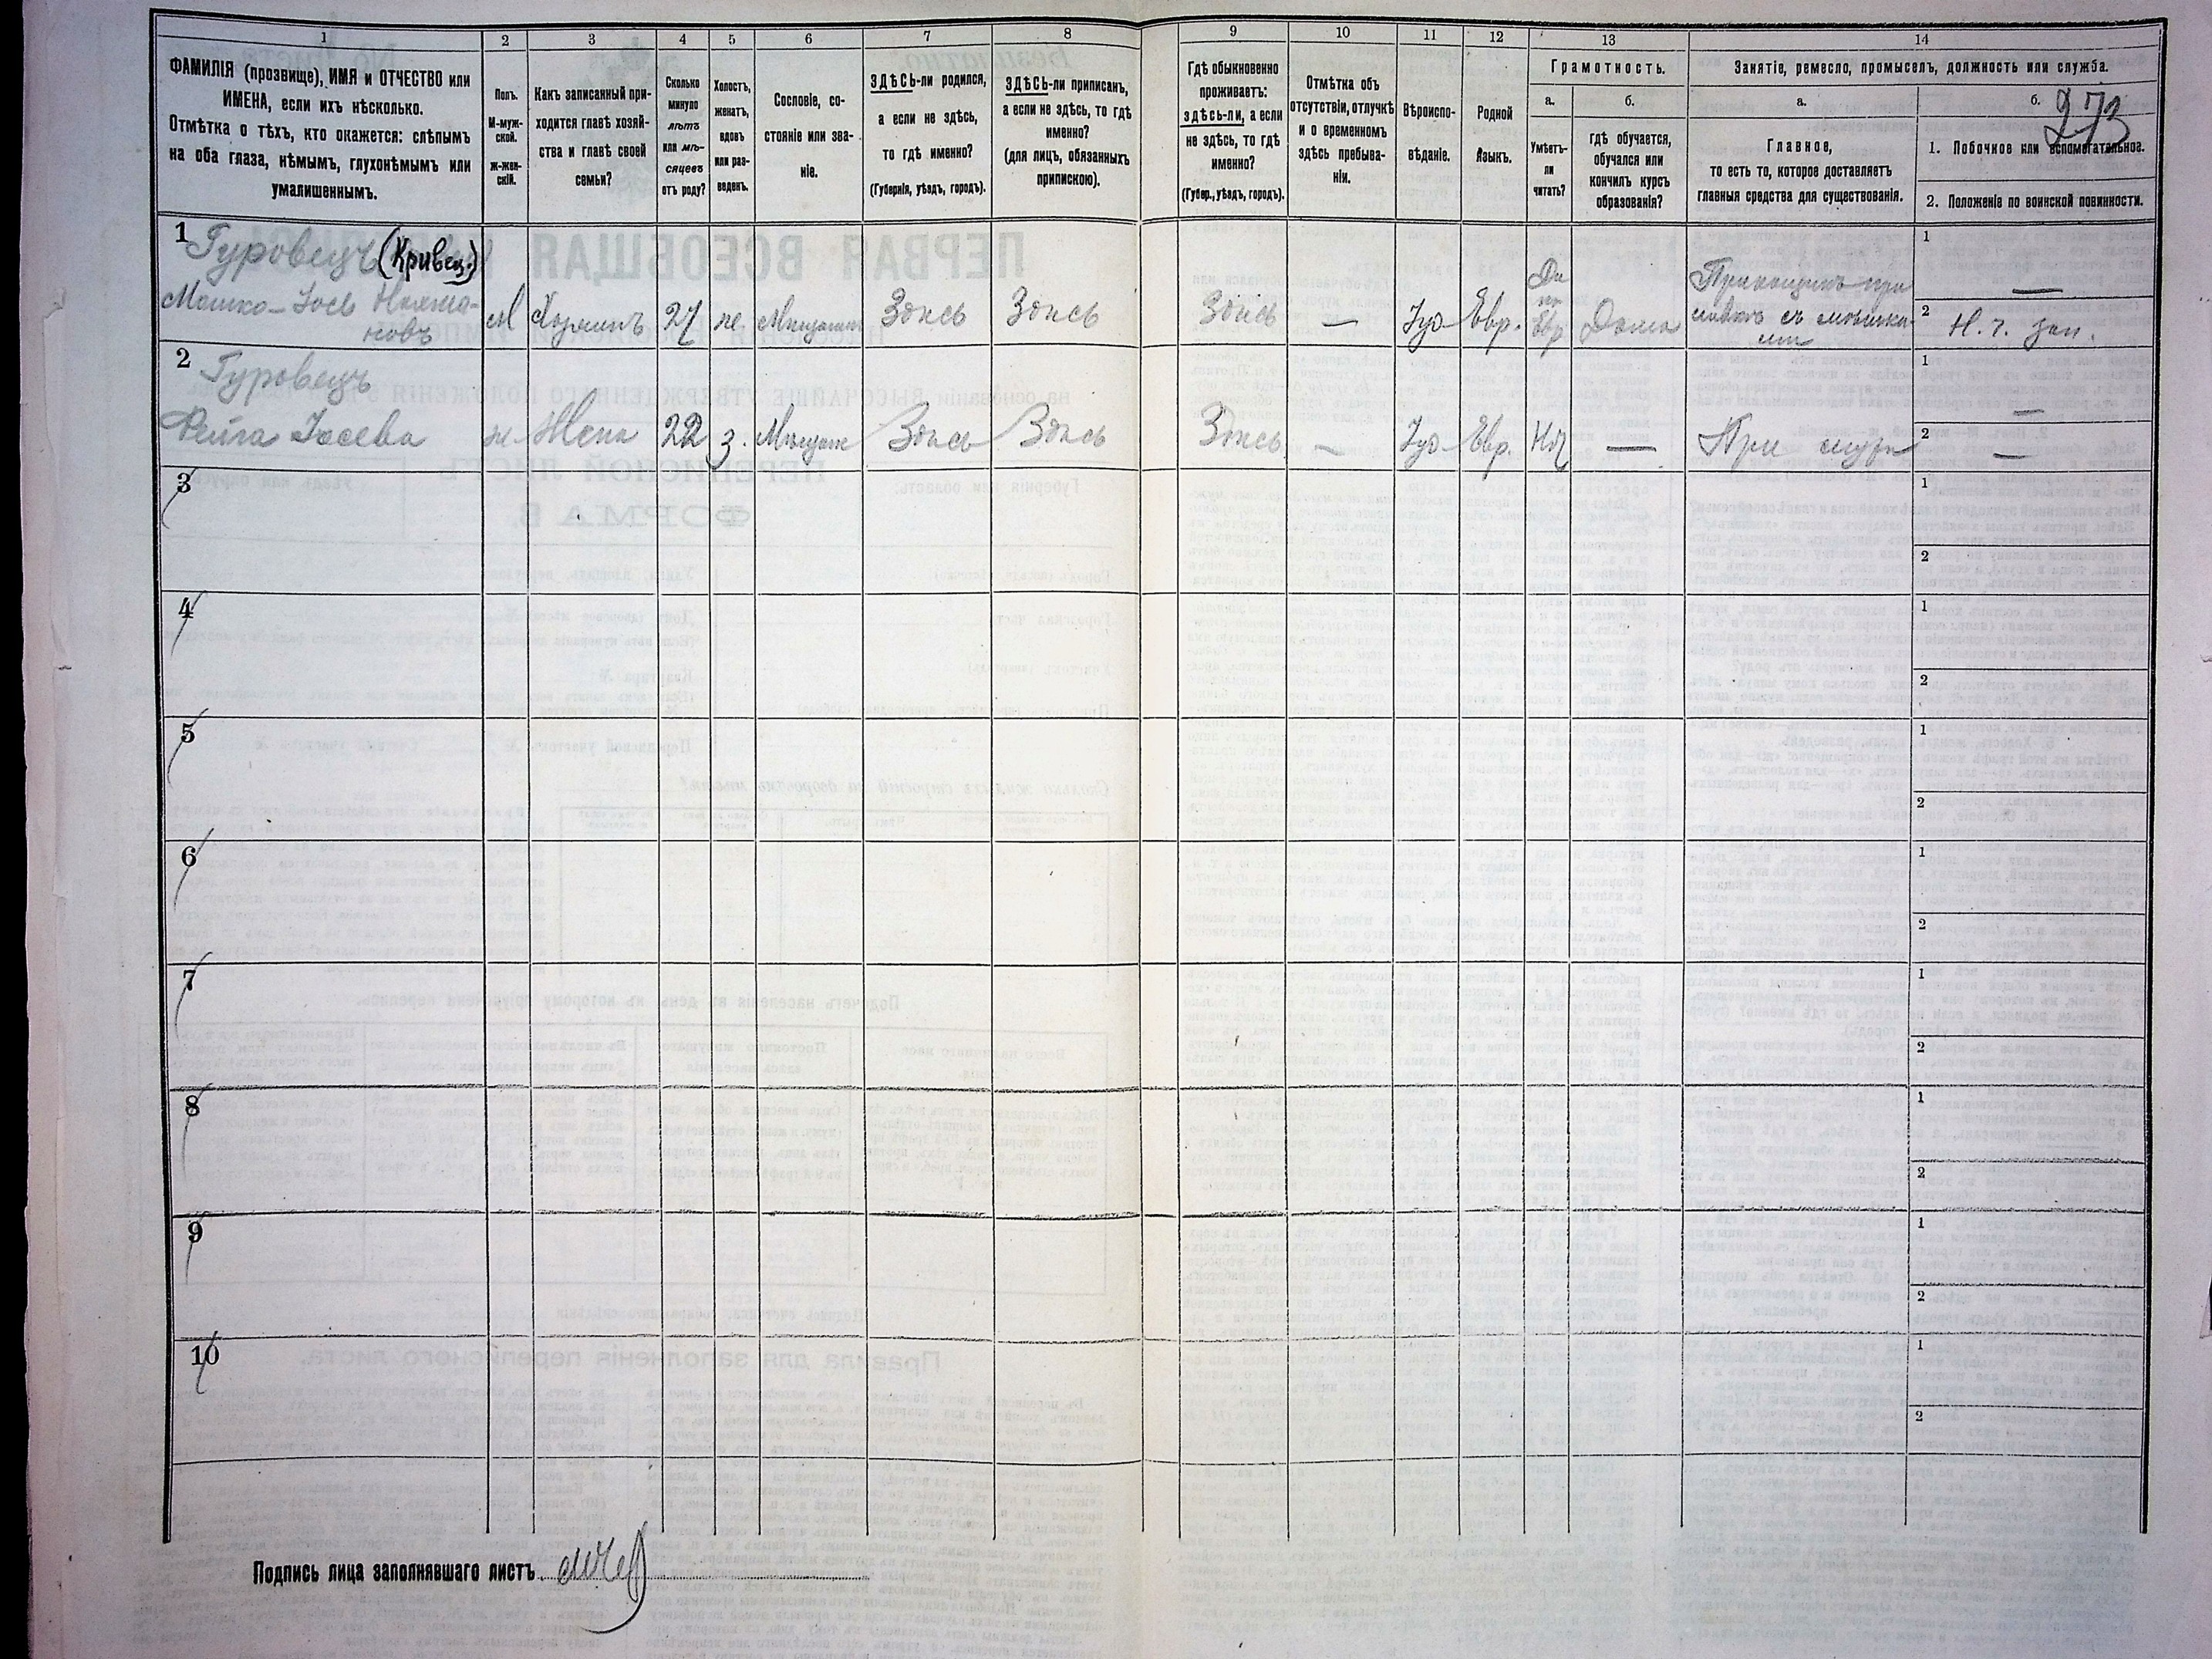 1 2 3 4 5 6 7 8 9 10 11 12 13 14
ФАМИЛІЯ (прозвище), ИМЯ и ОТЧЕСТВО или
ИМЕНА, если ихъ нѣсколько.
Отмѣтка о тѣхъ, кто окажется: слѣпымъ
на оба глаза, нѣмымъ, глухонѣмымъ или
умалишеннымъ.
Полъ.
М-муж-
ской.
ж-жен-
скій.
Какъ записанный при-
ходится главѣ хозяй-
ства и главѣ своей
семьи?
Сколько
минуло
лѣтъ
или мѣ-
сяцевъ
отъ роду?
Холостъ,
женатъ,
вдовъ
или раз-
веденъ.
Сословіе, со-
стояніе или зва-
ніе.
ЗДѢСЬ-ли родился,
а если не здѣсь,
то гдѣ именно?
(Губернія, уѣздъ, городъ).
ЗДѢСЬ-ли приписанъ,
а если не здѣсь, то гдѣ
именно?
(для лицъ, обязанныхъ
припискою).
Гдѣ обыкновенно
проживаетъ:
здѣсь-ли, а если
не здѣсь, то гдѣ
именно?
(Губер., уѣздъ, городъ).
Отмѣтка объ
отсутствіи, отлучкѣ
и о временномъ
здѣсь пребыва-
ніи.
Вѣроиспо-
вѣданіе.
Родной
языкъ.
Грамотность.
а.
Умѣетъ-
ли
читать?
б.
гдѣ обучается,
обучался или
кончилъ курсъ
образованія?
Занятіе, ремесло, промыселъ, должность или служба.
а.
Главное,
то есть то, которое доставляетъ
главныя средства для существованія.
б.
273
1. Побочное или вспомогательное.
2. Положеніе по воинской повинности.
1 Гуровецъ (Кривец.)
Мошко-Іось Нахма-
новъ
М Хозяинъ 27 же Мѣщанинъ Здѣсь Здѣсь Здѣсь — Іуд Евр. Да по Евр Дома
1 —
2 Н. ч. зап.
2 Гуровецъ
Фейга Іосева ж. Жена 22 з. Мѣщане Здѣсь Здѣсь Здѣсь — Іуд Евр. Нѣт — При мужѣ
1 —
2 —
3 1
2
4 1
2
5 1
2
6 1
2
7 1
2
8 1
2
9 1
2
10 1
2
Подпись лица заполнявшаго листъ